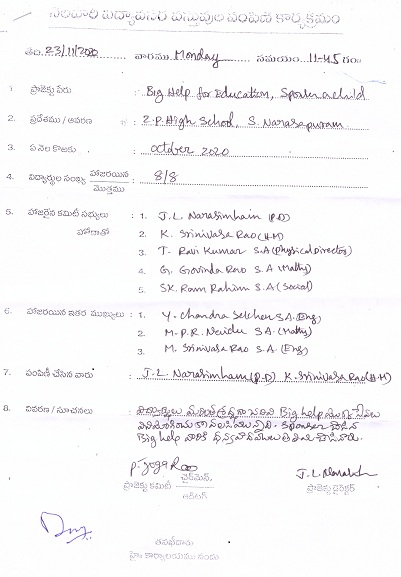 నెలవారీ విద్యావసర వస్తువుల పంపిణీ కార్యక్రమం
తేది. 23/11/2020 వారము Monday సమయం 11-45 గం॥
1. ప్రాజెక్టు పేరు : Big Help for Education, Sponsor a child
2. ప్రదేశము / ఆవరణ : Z.P. High School, S. Narasapuram
3. ఏ నెల కొఱకు : October 2020
4. విద్యార్థుల సంఖ్య హాజరయిన / మొత్తము : 8/8
5. హాజరైన కమిటీ సభ్యులు : 1. J.L. Narasimham (P.D)
హోదాతో 2. K. Srinivasa Rao (H.M)
3. T. Ravi Kumar S.A (Physical Director)
4. G. Govinda Rao S.A (Maths)
5. SK. Ram Rahim S.A (Social)
6. హాజరయిన ఇతర ముఖ్యులు : 1. Y. Chandra Sekhar S.A. (Eng)
2. M.P.R. Naidu S.A. (Maths)
3. M. Srinivasa Rao S.A. (Eng)
7. పంపిణీ చేసిన వారు : J.L. Narasimham (P.D) K. Srinivasa Rao (H.M)
8. వివరణ / సూచనలు : విద్యార్థులు Big help
Sponsor చేసిన
Big help వారికి ధన్యవాదములు
P. Joga Rao J.L. Narasimh
ప్రాజెక్టు కమిటీ ఛైర్మెన్ ప్రాజెక్టు డైరెక్టర్
ఆడిటర్